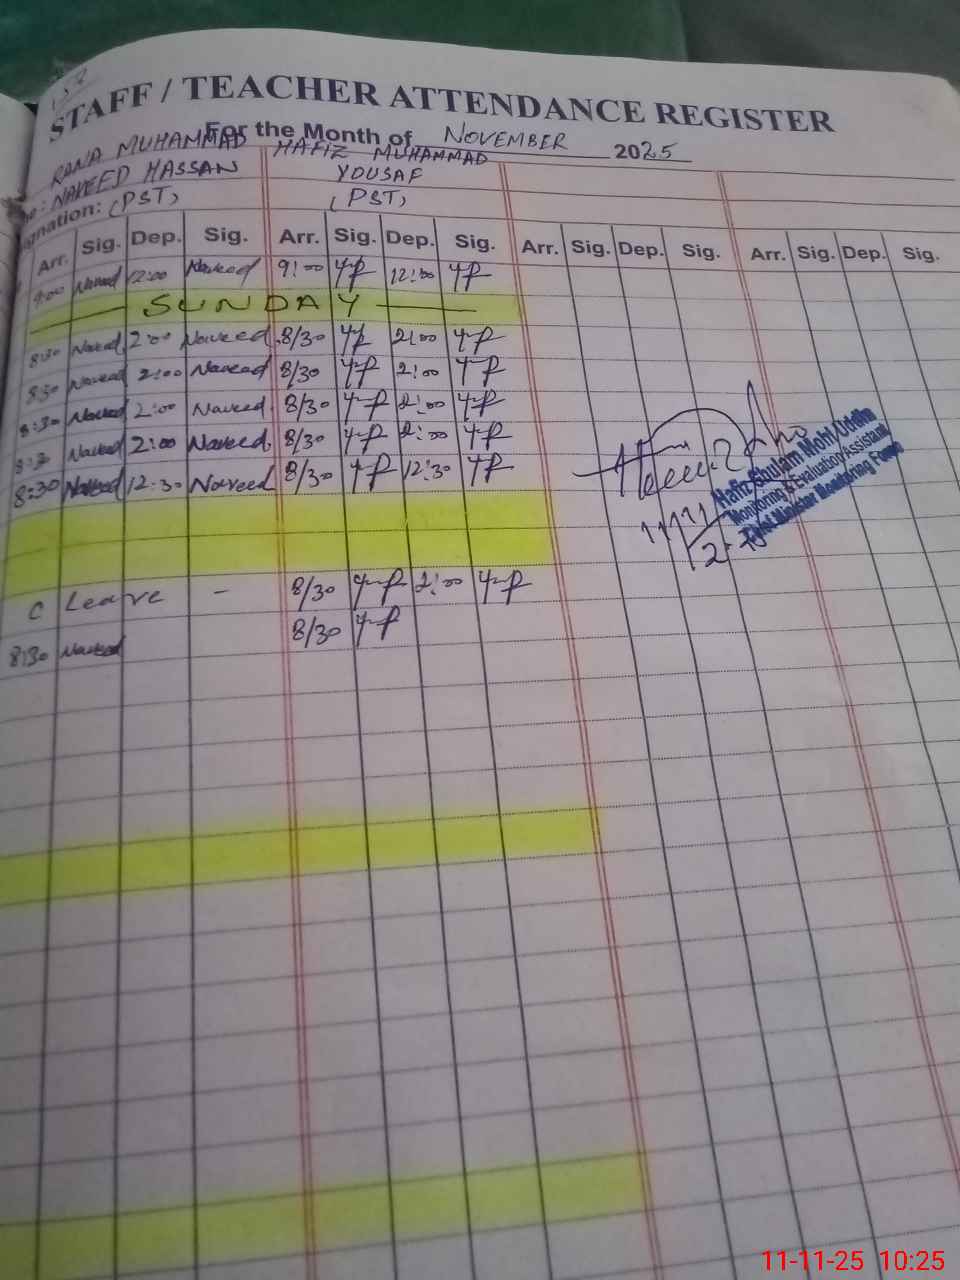 STAFF / TEACHER ATTENDANCE REGISTER
For the Month of NOVEMBER 2025
RANA MUHAMMAD HAFIZ MUHAMMAD
NAVEED HASSAN YOUSAF
gnation: (PST) (PST)
Arr. Sig. Dep. Sig. Arr. Sig. Dep. Sig. Arr. Sig. Dep. Sig. Arr. Sig. Dep. Sig.
9:00 Naveed 12:00 Naveed 9:00 12:00
SUNDAY
8:30 Naveed 2:00 Naveed 8/30 2:00
8:30 Naveed 2:00 Naveed 8/30 2:00
8:30 Naveed 2:00 Naveed 8/30 2:00
8:30 Naveed 2:00 Naveed 8/30 2:00
8:30 Naveed 12:30 Naveed 8/30 12:30
Hafiz Ghulam Mohi Uddin
Monitoring & Evaluation Assistant
Chief Minister Monitoring Force
C Leave - 8/30 2:00
8:30 Naveed 8/30
11-11-25 10:25